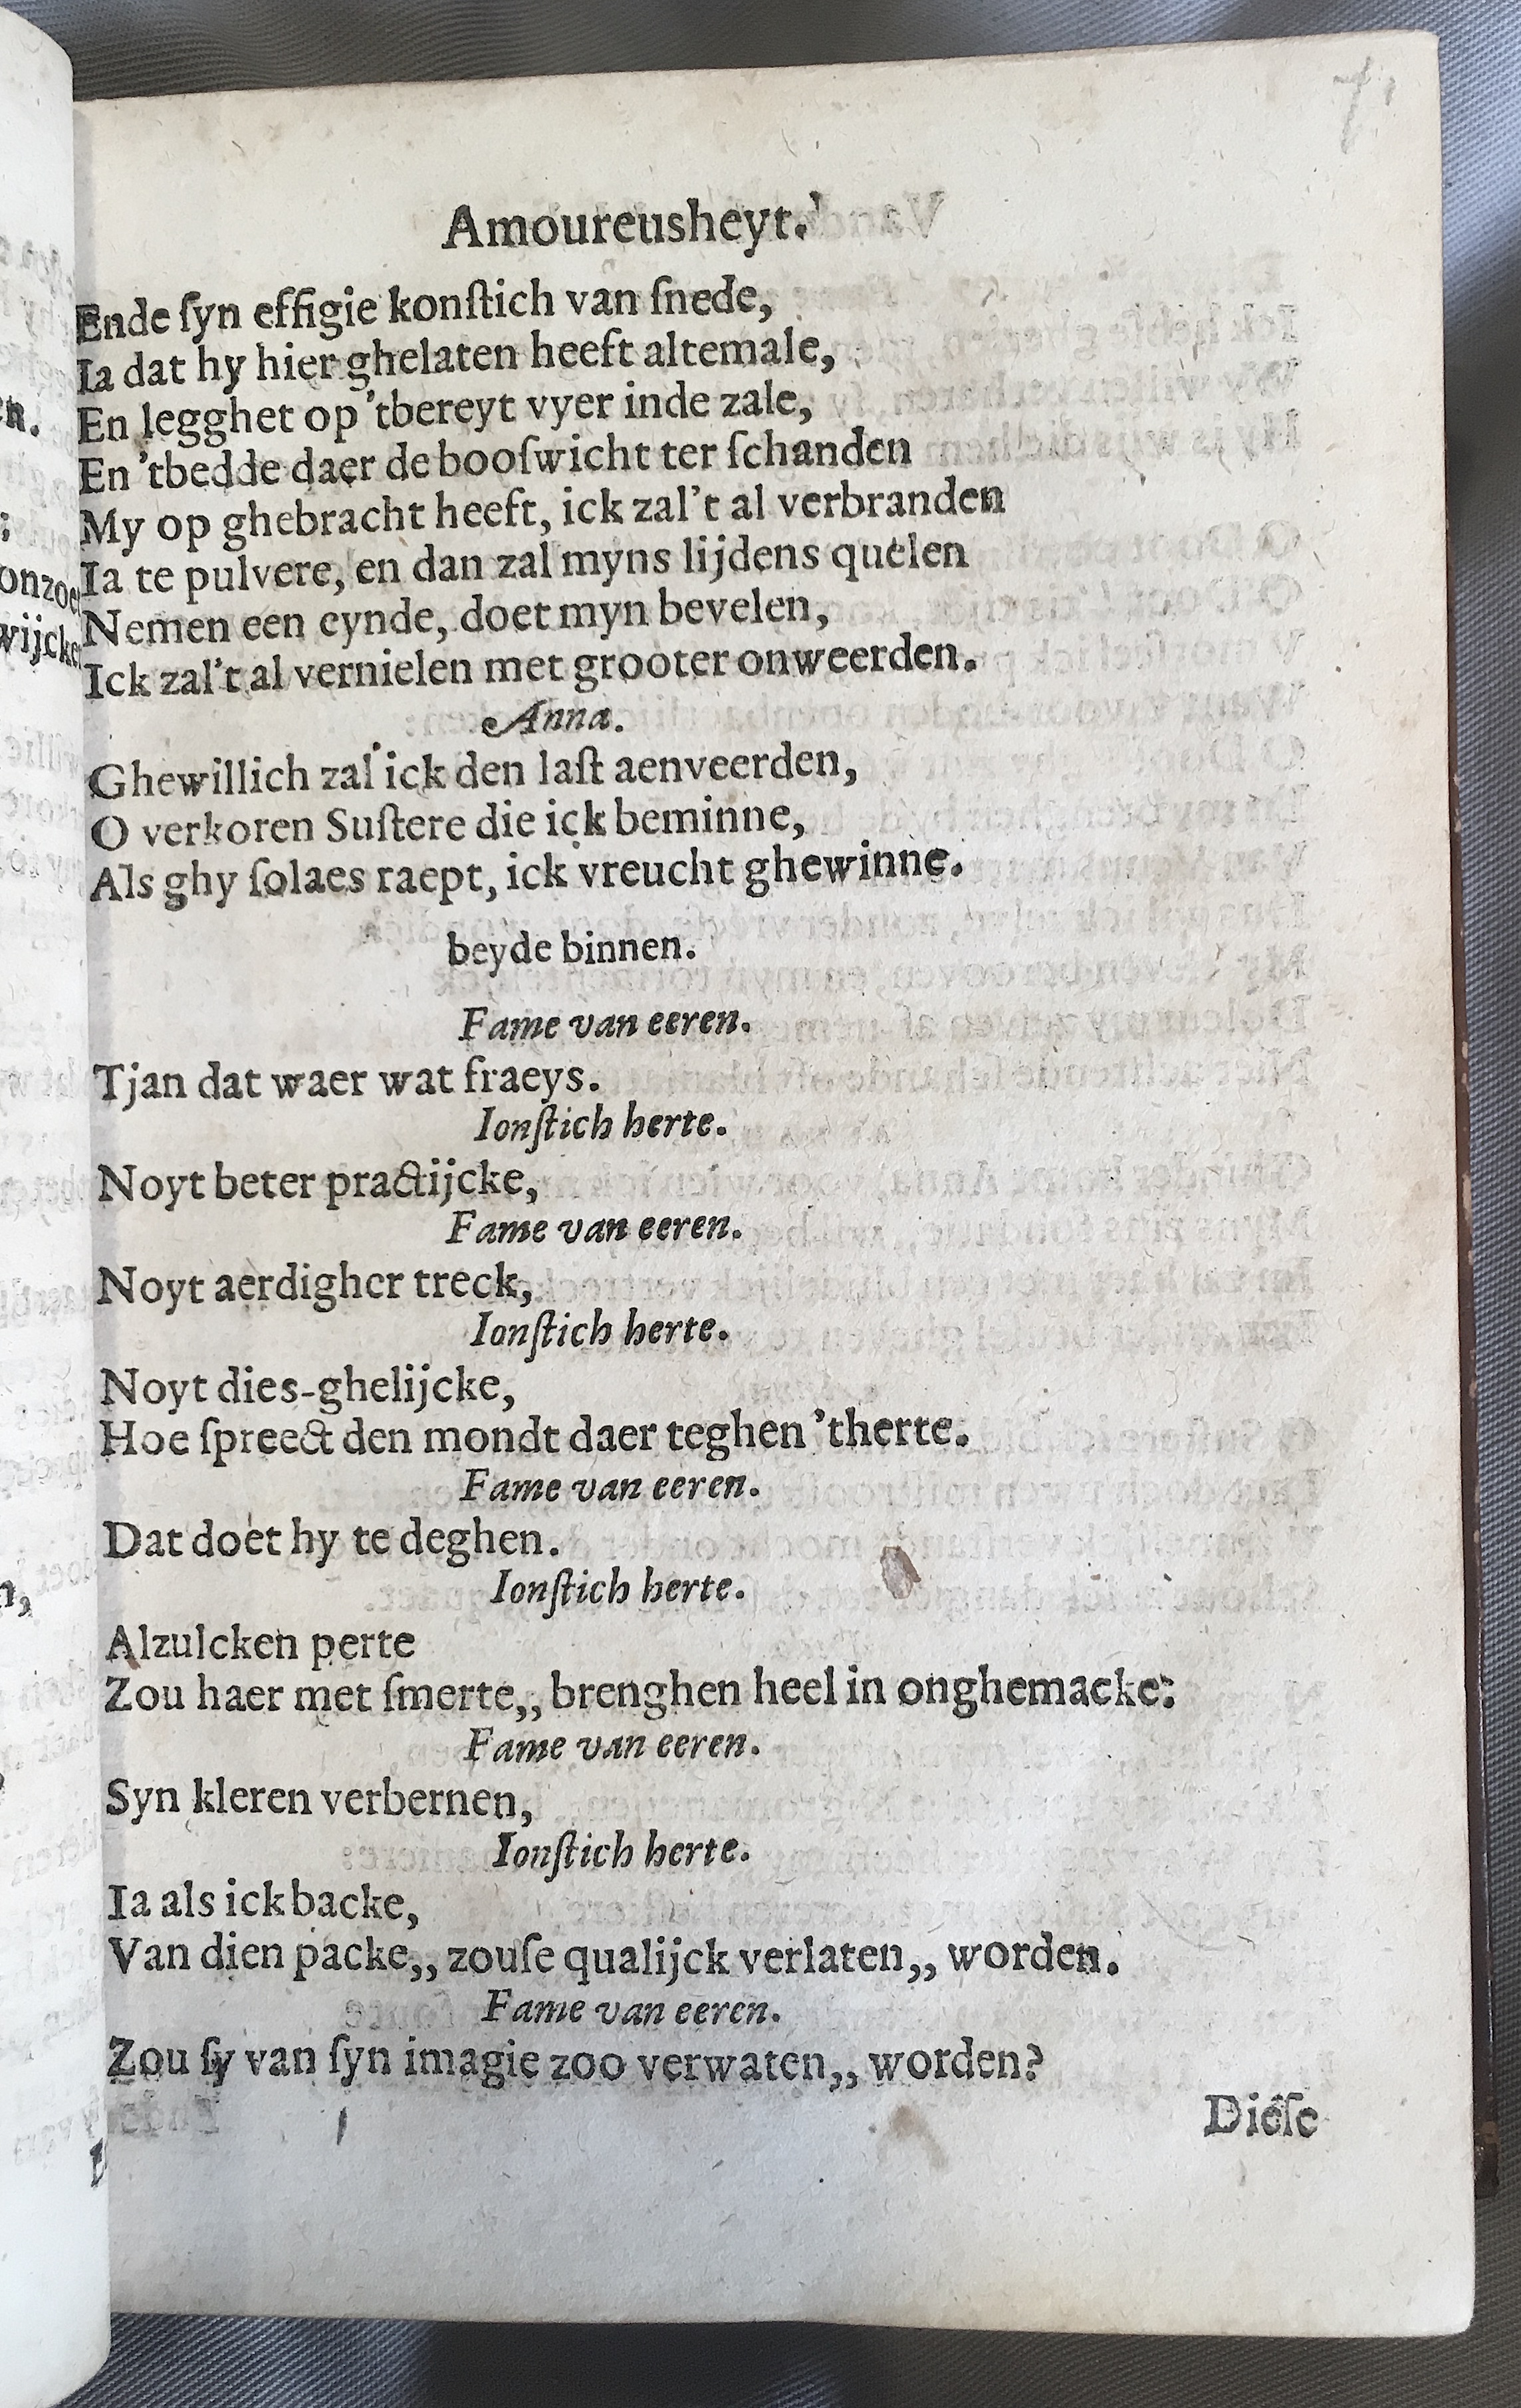 Amoureusheyt.
Ende ſyn effigie konſtich van ſnede,
Ia dat hy hier ghelaten heeft altemale,
En legghet op 'tbereyt vyer inde zale,
En 'tbedde daer de booſwicht ter ſchanden
My op ghebracht heeft, ick zal't al verbranden
Ia te pulvere, en dan zal myns lijdens quelen
Nemen een eynde, doet myn bevelen,
Ick zal't al vernielen met grooter onweerden.
Anna.
Ghewillich zal ick den laſt aenveerden,
O verkoren Suſtere die ick beminne,
Als ghy ſolaes raept, ick vreucht ghewinne.
beyde binnen.
Fame van eeren.
Tjan dat waer wat fraeys.
Ionſtich herte.
Noyt beter practijcke,
Fame van eeren.
Noyt aerdigher treck,
Ionſtich herte.
Noyt dies-ghelijcke,
Hoe ſpreect den mondt daer teghen 'therte.
Fame van eeren.
Dat doet hy te deghen.
Ionſtich herte.
Alzulcken perte
Zou haer met ſmerte,, brenghen heel in onghemacke:
Fame van eeren.
Syn kleren verbernen,
Ionſtich herte.
Ia als ick backe,
Van dien packe,, zouſe qualijck verlaten,, worden.
Fame van eeren.
Zou ſy van ſyn imagie zoo verwaten,, worden?
Dieſe